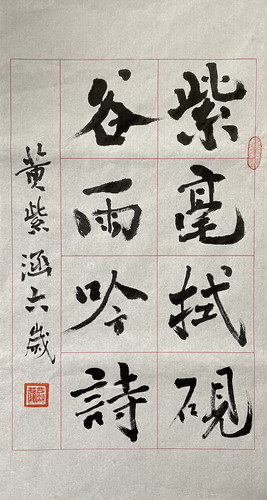 紫毫拭硯
谷雨吟詩
黃紫涵六歲